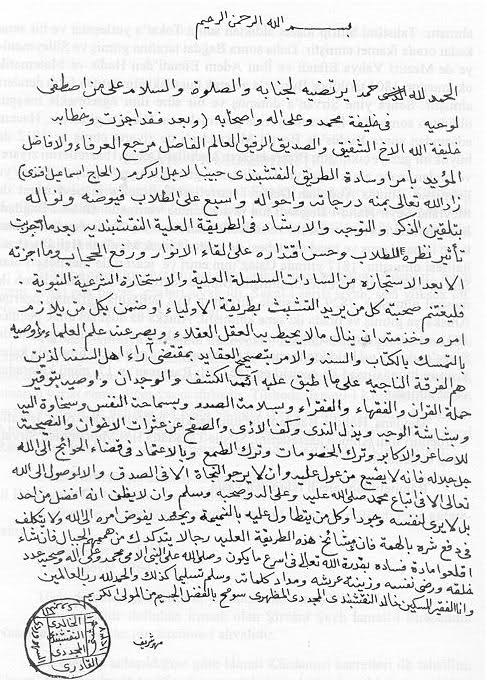 بسم الله الرحمن الرحيم
الحمد لله حمدا يرتضيه لجنابه والصلوة والسلام على من اصطفى
لوحيه في خليقة محمد وعلى آله واصحابه وبعد فقد اجزت
خليفة الله الاخ الشفيق والصديق الرفيق العالم الفاضل مرجع العرفاء والافاضل
المؤيد بامرا وسادة الطريق النقشبندى حبيبنا لاجل الاكرم (الحاج اسماعيل افندى)
زاد الله تعالى بمنه درجاته واحواله واسبع على الطلاب فيوضه ونواله
بتلقين الذكر والتوجيد والارشاد في الطريقة العلية النقشبنديه بعد ما جربت
تأثير نظره للطلاب وحسن اقتداره على القاء الانوار ورفع الحجاب وما اجزته
الا بعد الاستجازه من السادات السلسلة العلية والاستخارة الشرعية النبوية .
فليغتنم صحبته كل من يريد التشبث بطريقة الاولياء اوضمن بكل من يلازم
امره وخدمته ان ينال ما لا يحيط به العقل العقلاء ويصر عنه علم العلماء وأوصيه
بالتمسك بالكتاب والسنه والامر بتصحيح العقايد بمقتضى آراء اهل السنه الذين
هم الفرقة الناجيه على ما طبق عليه ائمة الكشف والوجدان واوصيه بتوقير
حملة القران والفقهاء والفقراء وبسلامة الصدر وبسماحة النفس وسخاوة اليد
وببشاشة الوجه وبذل الندى وكف الاذى والصفح عن عثرات الاخوان والنصيحة
للاصاغر والاكابر وترك الخصومات وترك الطمع وبالاعتماد في قضاء الحوائج الى الله
جل جلاله فانه لا يضيع من عول عليه وان لا يرجو النجاة الا في الصدق والا لوصول الى الله
تعالى الا في اتباع محمد صلى الله عليه وعلى آله وصحبه وسلم وان لا يظن انه افضل من احد
بل لا يرى لنفسه وجودا وكل من يتطاول عليه بالنميمة ويحسد يفوض امره الى الله ولا يتكلف
في دفع شره بالهمة فان مشائخ هذه الطريقة العليه رجالا يتدكدك من هممهم الجبال فان شاء
اقلعوا مادة فساده بقدرة الله تعالى في اسرع ما يكون وصلى الله على النبى الامى محمد وعلى آله وصحبه عدد
خلقه ورضى نفسه وزينة عرشه ومداد كلماته وسلم تسليما كذلك والحمد لله رب العالمين
وانا الفقير المسكين خالد النقشبندى المجددى المظهرى سومح بالفضل الجسيم من المولى الكريم
مهر شريف
الخالدى
النقشبندى
المجددى
القادرى